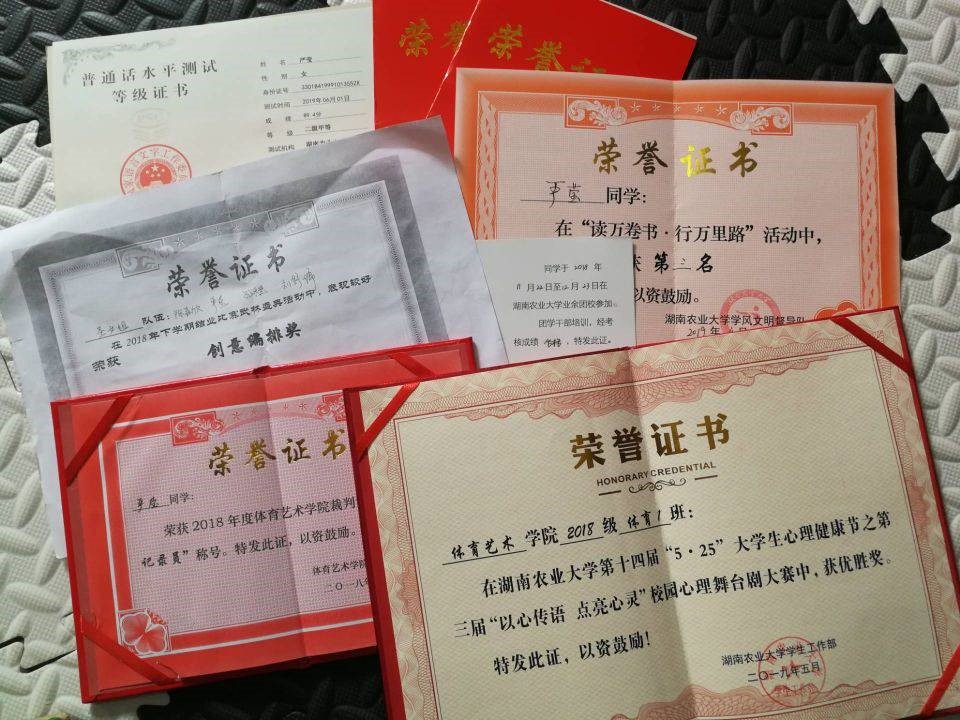 普通话水平测试
等级证书
姓 名 严莹
性 别 女
身份证号
测试时间 2019年06月01日
成 绩
等 级 二级甲等
测试机构
荣誉
荣誉证
荣誉证书
同学:
在“读万卷书·行万里路”活动中,
获 第三名
以资鼓励。
湖南农业大学学风文明督导队
荣誉证书
队伍:
在2018年下学期结业比赛武林盛典活动中, 表现较好
荣获
创意编排奖
同学于 2018 年
湖南农业大学业余团校参加
团学干部培训, 经考
核成绩 特发此证。
荣誉证书
同学:
荣获 2018 年度体育艺术学院裁判
记录员”称号。特发此证, 以资鼓励。
体育艺术学院
二〇一八年
荣誉证书
HONORARY CREDENTIAL
体育艺术 学院 2018 级 体育1 班:
在湖南农业大学第十四届“5·25”大学生心理健康节之第
三届“以心传语 点亮心灵”校园心理舞台剧大赛中, 获优胜奖。
特发此证, 以资鼓励!
湖南农业大学学生工作部
二〇一九年五月